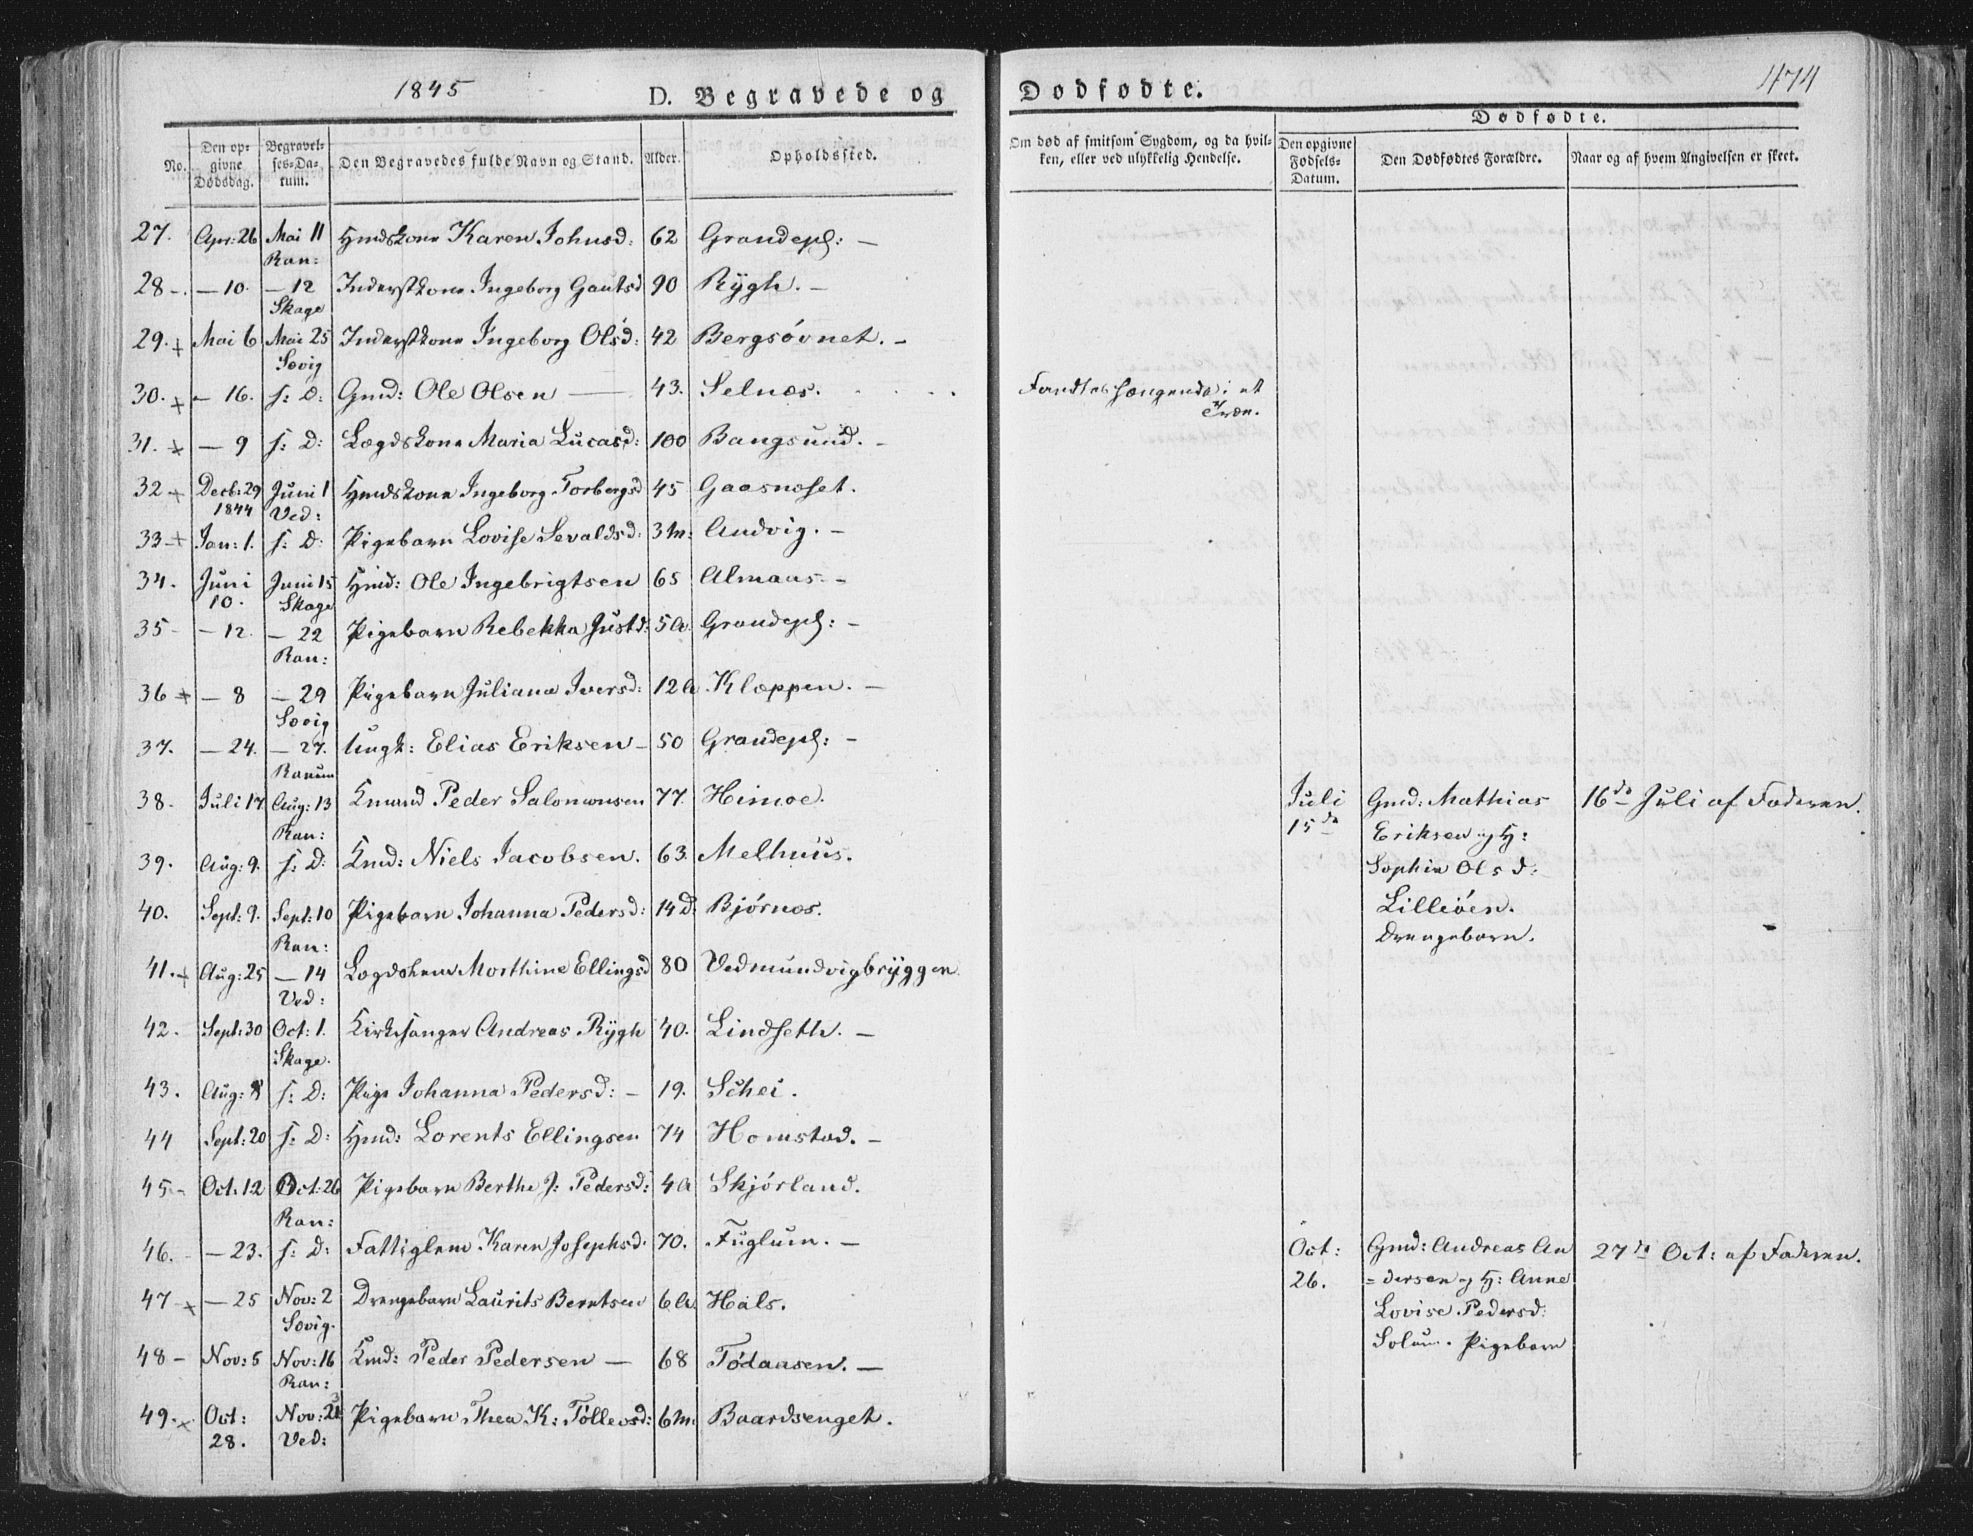 1845
D. Begravede og
No.
Den opgivne Dødsdag.
Begravelses-Datum.
Den Begravedes fulde Navn og Stand.
Alder.
Opholdssted.
27. Apr: 26 Mai 11 Hmdskone Karen Johnsd: 62 Grandepl: —
Ran:
28 -. — 10. — 12 Inderstkone Ingeborg Gautsd 90 Rÿgh. —
Skage
29. + Mai 6 Mai 25 Inderstkone Ingeborg Olsd: 42 Bergsövnet. —
Sovig
30. + — 16. s: D: Gmd: Ole Olsen — 43. Selnæs.
31. + — 9 s: D: Lægdskone Maria Lucasd: 100 Bangsund. —
32 + Decb: 29 Juni 1 Hmdskone Ingeborg Torbergsd 45 Gaasnæset.
1844 Ved:
33 + Jan: 1. s: D: Pigebarn Lovise Sevaldsd: 3 M: Andvig. —
34. Juni Juni 15 Hmd: Ole Ingebrigtsen 65 Almaas. —
10. Skage
35 - — 12. — 22 Pigebarn Rebekka Justd: 5 A. Grandepl: —
Ran:
36 + — 8 — 29 Pigebarn Juliana Iversd: 12 A Klæppen. —
Sovig
37. — 24. — 27. Ungk: Elias Eriksen — 50 Grandepl: —
Ranum
38. Juli 17 Aug: 13 Kmand Peder Salomonsen 77. Himoe.
Ran:
39. Aug: 9. s: D: Kmd: Niels Jacobsen. 63. Melhuus.
40. Sept: 9. Sept: 10 Pigebarn Johanna Pedersd: 14 D: Bjørnæs.
Ran:
41. + Aug: 25 — 14 Lægdslem Morthine Ellingsd 80 Vedmundvigbrÿggen.
Ved:
42. Sept: 30 Oct: 1. Kirkesanger Andreas Rÿgh 40. Lindseth. —
Skage.
43. Aug: s: D: Pige Johanna Pedersd: — 19. Schei.
44 Sept: 20 s: D: Hmd: Lorents Ellingsen 74 Homstad. —
45 - Oct: 12 Oct: 26 Pigebarn Berthe J: Pedersd: 4 A Skjørland.
Ran:
46. - — 23. s: D: Fattiglem Karen Josephsd. 70. Fuglum. —
47 - + — 25 Nov: 2 Drengebarn Laurits Berntsen 6 A. Hals.
Sovig.
48 - Nov: 5 Nov: 16 Kmd: Peder Pedersen — 68 Tødaasen. —
Ran:
49. + Oct: Nov: Pigebarn Thea K: Tøllevsd: 6 M. Baardsenget.
28. Ved:
Dødfødte.
474
Om død af smitsom Sygdom, og da hvilken, eller ved ulykkelig Hendelse.
Dødfødte.
Den opgivne Fødsels-Datum.
Den Dødfødtes Forældre.
Naar og af hvem Angivelsen er skeet.
Fandtes hængende i et
Træe.
Juli Gmd: Mathias 16de Juli af Faderen.
15de Eriksen og H:
Sophia Olsd:
Lilleöen.
Drengebarn.
Oct: Gmd: Andreas An 27de Oct: af Faderen.
26. = dersen og H: Anne
Lovise Pedersd:
Solum. Pigebarn